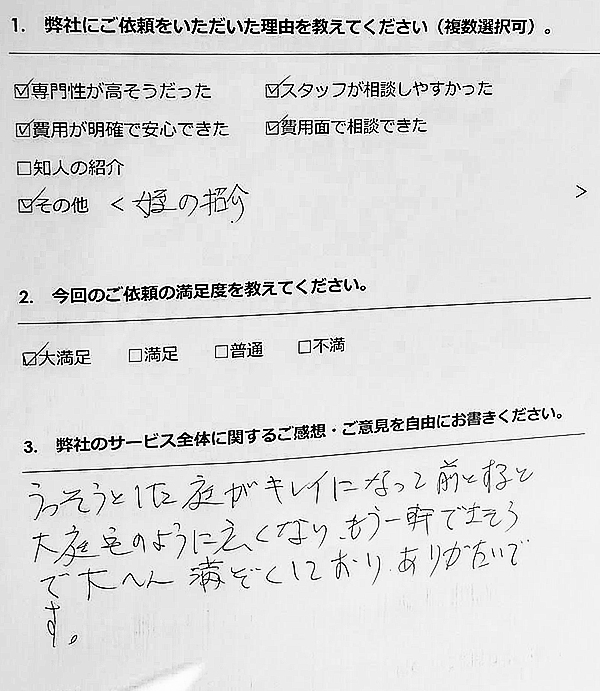 1. 弊社にご依頼をいただいた理由を教えてください（複数選択可）。
☑専門性が高そうだった ☑スタッフが相談しやすかった
☑費用が明確で安心できた ☑費用面で相談できた
□知人の紹介
☑その他 < 姪の紹介 >
2. 今回のご依頼の満足度を教えてください。
☑大満足 □満足 □普通 □不満
3. 弊社のサービス全体に関するご感想・ご意見を自由にお書きください。
うっそうとした庭がキレイになって前とすると
大庭宅のように広くなり、もう一軒できそう
で大へん満ぞくしており、ありがたいで
す。